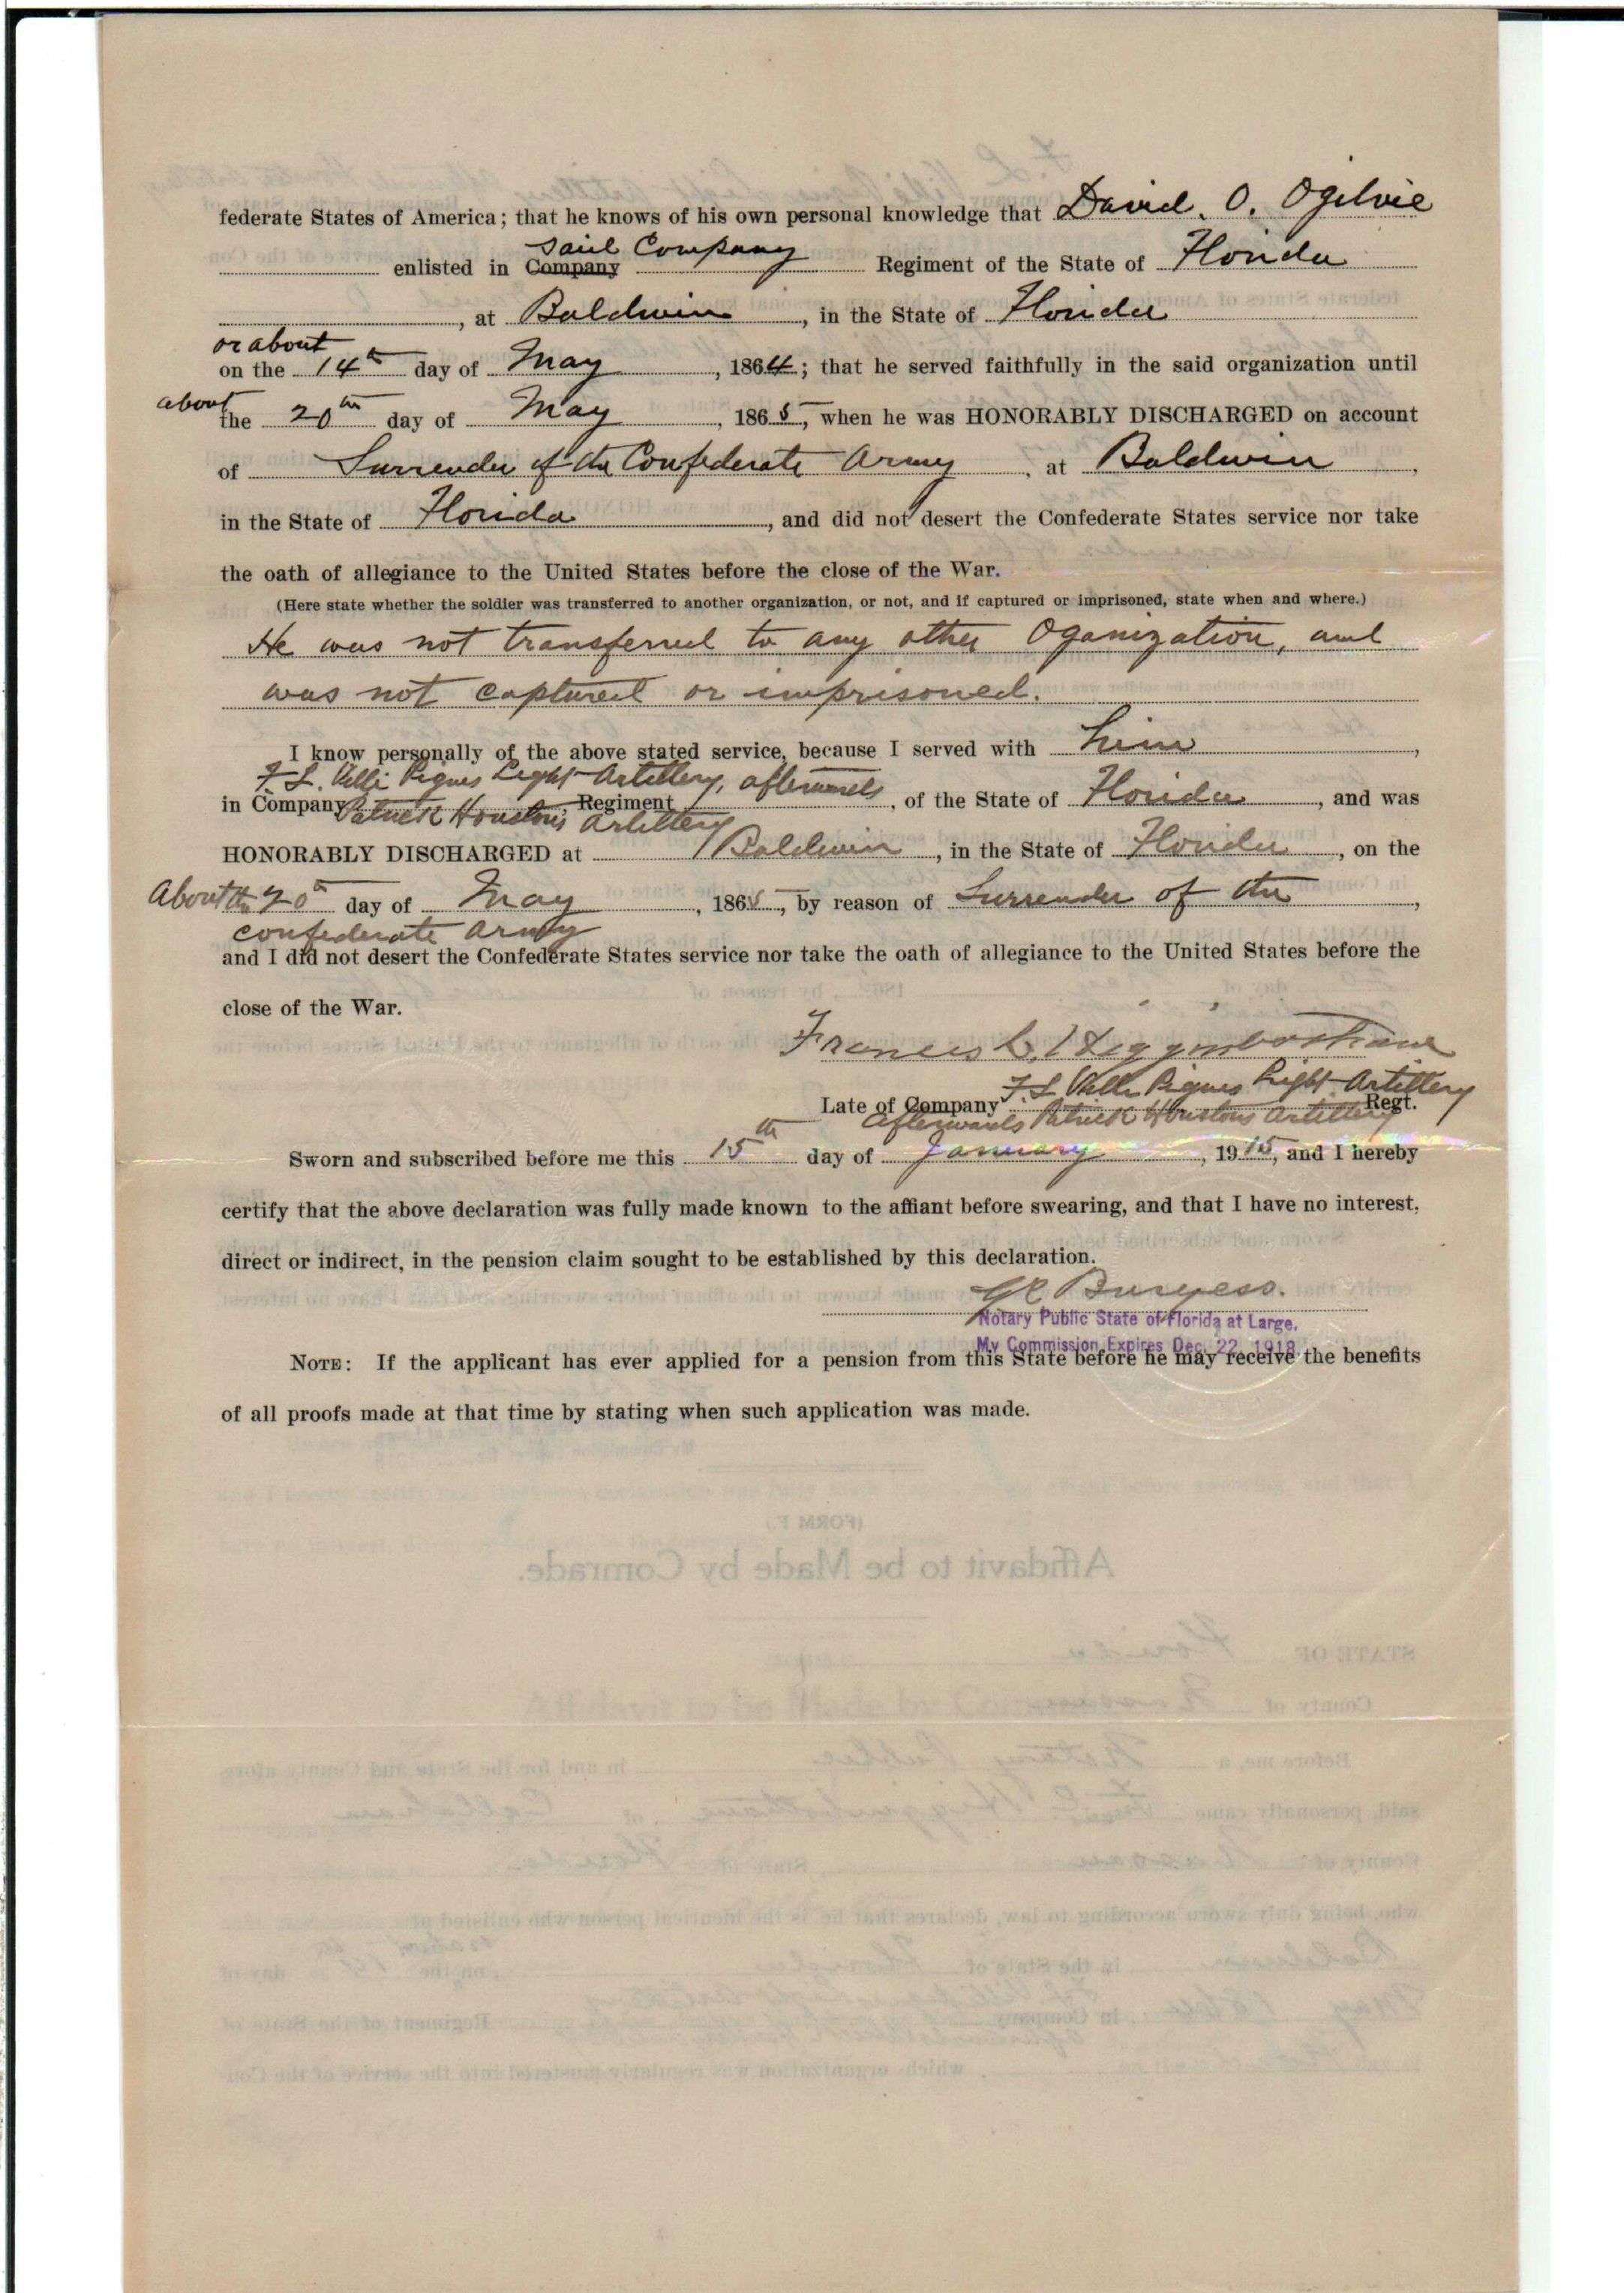 federate States of America; that he knows of his own personal knowledge that David. O. Ogilvie
said Company
enlisted in Company Regiment of the State of Florida
, at Baldwin, in the State of Florida
or about
on the 14th day of May, 1864; that he served faithfully in the said organization until
about
the 20th day of May, 1865, when he was HONORABLY DISCHARGED on account
of Surrender of the Confederate Army, at Baldwin,
in the State of Florida, and did not desert the Confederate States service nor take
the oath of allegiance to the United States before the close of the War.
(Here state whether the soldier was transferred to another organization, or not, and if captured or imprisoned, state when and where.)
He was not transferred to any other Oganization, and
was not captured or imprisoned.
I know personally of the above stated service, because I served with him,
F. L. Villi Pigues Light Artillery, afterwards
in Company, Regiment, of the State of Florida, and was
Patrick Houstons Artillery
HONORABLY DISCHARGED at Baldwin, in the State of Florida, on the
About the 20th day of May, 1865, by reason of Surrender of the,
confederate Army
and I did not desert the Confederate States service nor take the oath of allegiance to the United States before the
close of the War.
Frances L. Higginbotham
F. L. Villi Pigues Light Artillery
Late of Company Regt.
Afterwards Patrick Houstons Artillery
Sworn and subscribed before me this 15th day of January, 1915, and I hereby
certify that the above declaration was fully made known to the affiant before swearing, and that I have no interest,
direct or indirect, in the pension claim sought to be established by this declaration.
Burgess.
Notary Public State of Florida at Large.
My Commission Expires Dec. 22, 1918.
NOTE: If the applicant has ever applied for a pension from this State before he may receive the benefits
of all proofs made at that time by stating when such application was made.